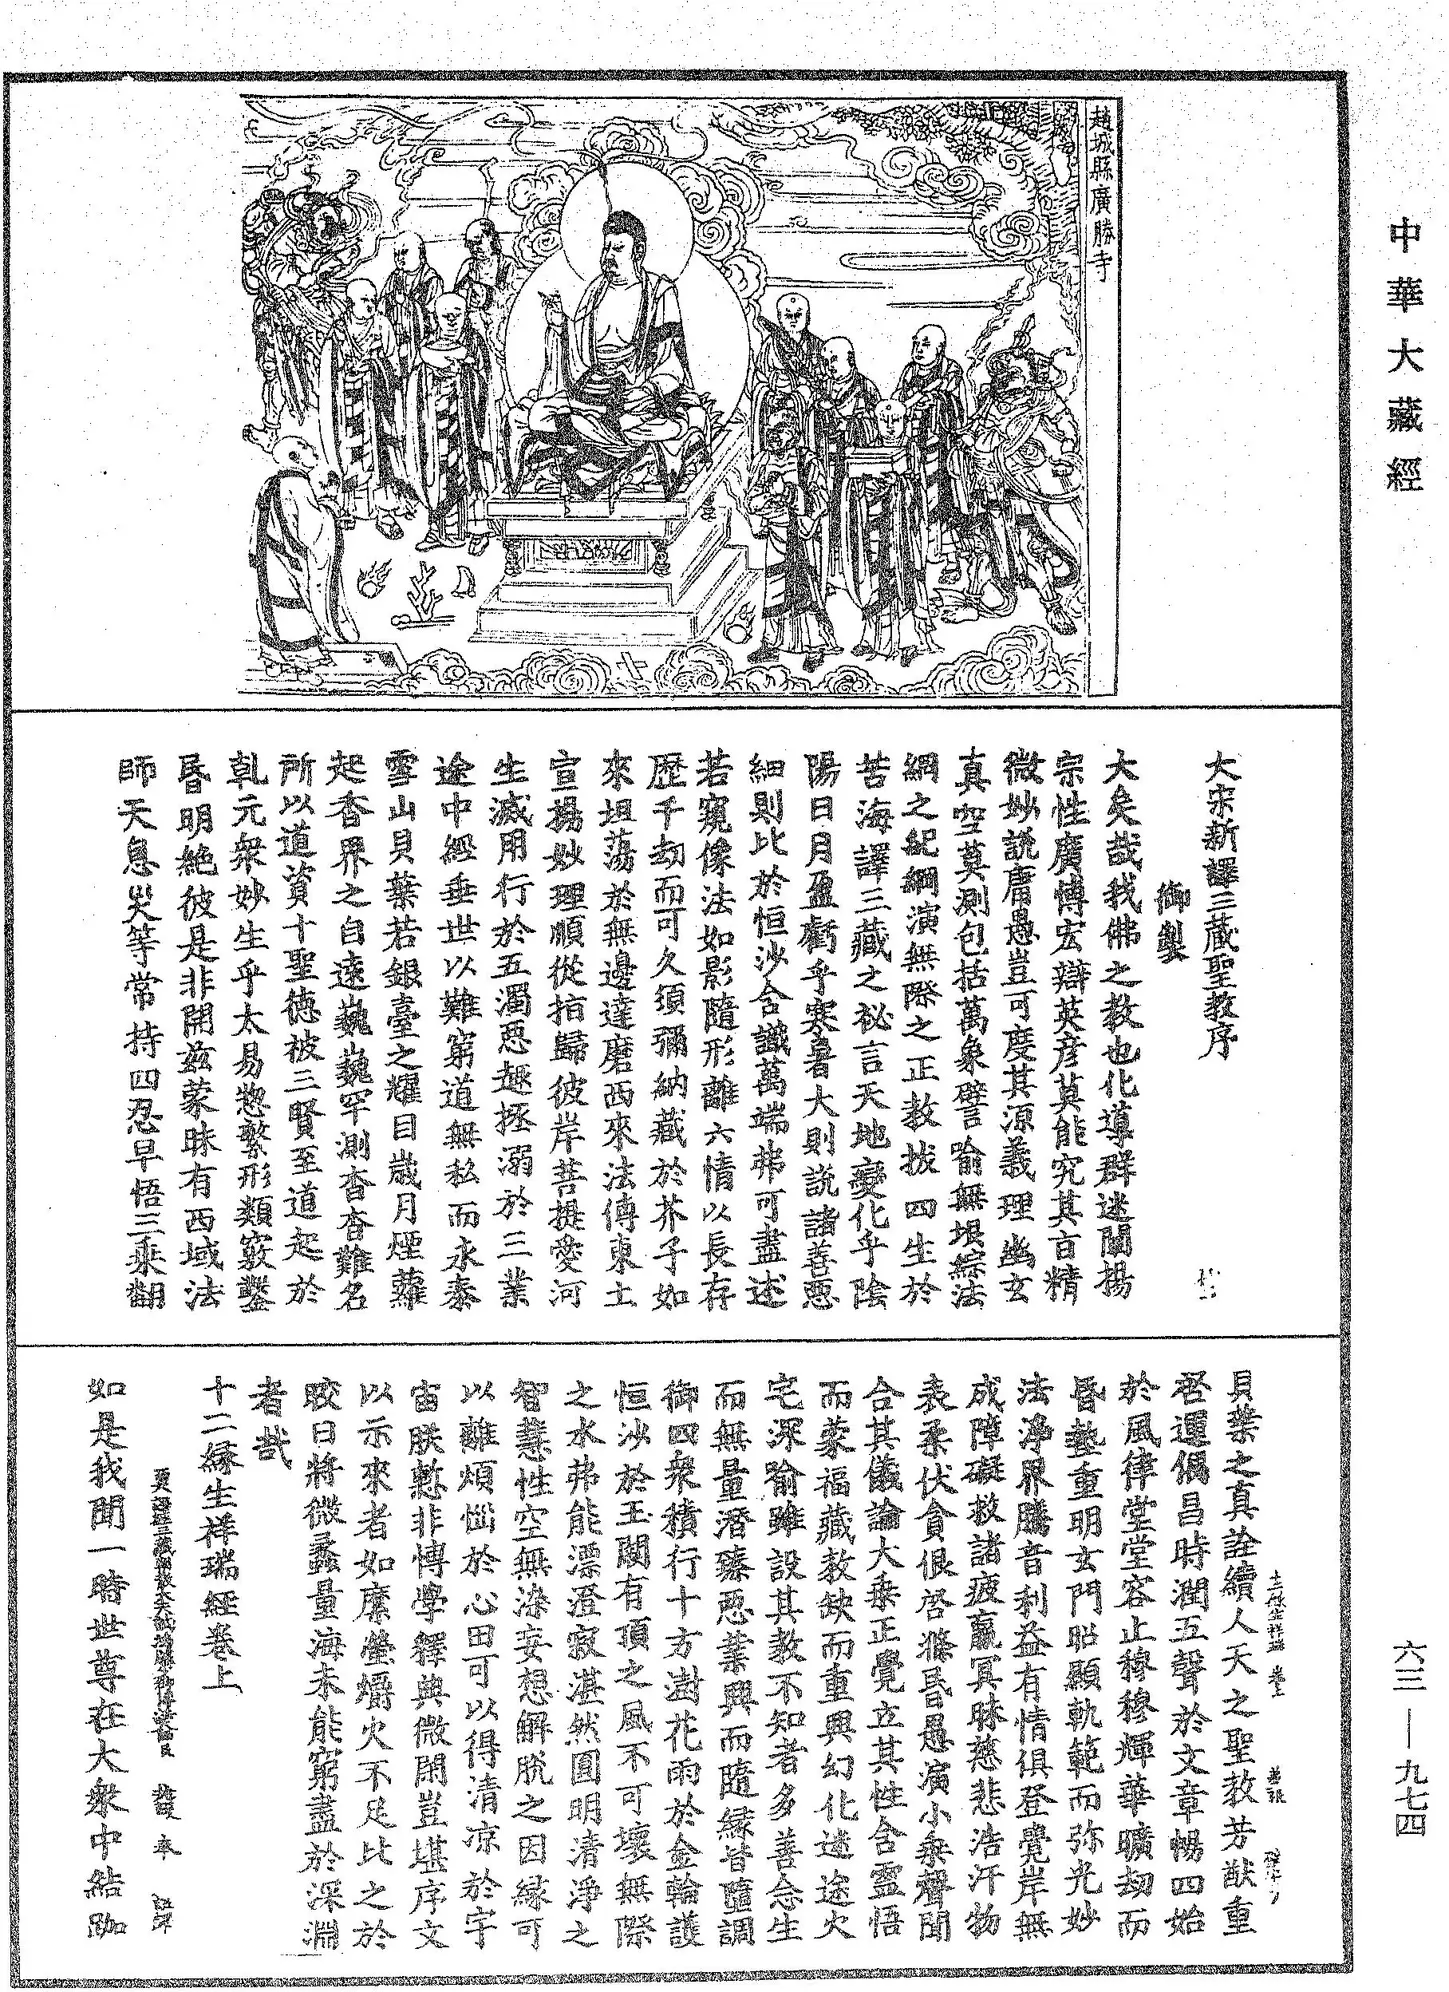 中華大藏經
趙城縣廣勝寺
大宋新譯三藏聖教序
御製
大矣哉我佛之教也化導群迷闡揚
宗性廣博宏辯英彥莫能究其旨精
微妙說庸愚豈可度其源義理幽玄
真空莫測包括萬象譬喻無垠綜法
網之紀綱演無際之正教拔四生於
苦海譯三藏之祕言天地變化乎陰
陽日月盈虧乎寒暑大則說諸善惡
細則比於恒沙含識萬端弗可盡述
若窺像法如影隨形離六情以長存
歷千劫而可久須彌納藏於芥子如
來坦蕩於無邊達磨西來法傳東土
宣揚妙理順從指歸彼岸菩提愛河
生滅用行於五濁惡趣拯溺於三業
途中經垂世以難窮道無私而永泰
雪山貝葉若銀臺之耀目歲月煙蘿
起香界之自遠巍巍罕測杳杳難名
所以道資十聖德被三賢至道起於
乹元衆妙生乎太易惣繫形類竅鑿
昏明絕彼是非開茲蒙昧有西域法
師天息災等常持四忍早悟三乘翻
貝葉之真詮續人天之聖教芳猷重
啓運偶昌時潤五聲於文章暢四始
於風律堂堂容止穆穆輝華曠劫而
昏墊重明玄門昭顯軌範而弥光妙
法淨界騰音利益有情俱登覺岸無
成障礙救諸疲羸冥昧慈悲浩汗物
表柔伏貪佷啓滌昏愚演小乘聲聞
合其儀論大乘正覺立其性含靈悟
而蒙福藏教缺而重興幻化迷途火
宅深喻雖設其教不知者多善念生
而無量潛臻惡業興而隨緣皆墮調
御四衆積行十方澍花雨於金輪護
恒沙於玉闕有頂之風不可壞無際
之水弗能漂澄寂湛然圓明清淨之
智慧性空無染妄想解脫之因緣可
以離煩惱於心田可以得清凉於宇
宙朕慙非博學釋典微閑豈堪序文
以示來者如縻螢爝火不足比之於
皎日將微蠡量海未能窮盡於深淵
者哉
十二緣生祥瑞經卷上
如是我聞一時世尊在大衆中結跏
六三—九七四